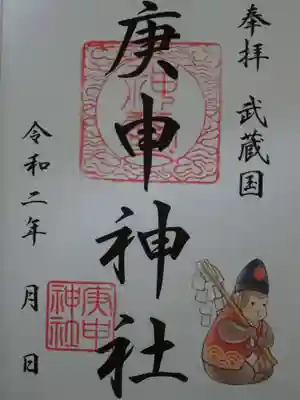 奉拝 武蔵国
庚申神社
庚申
神社
令和二年 月 日